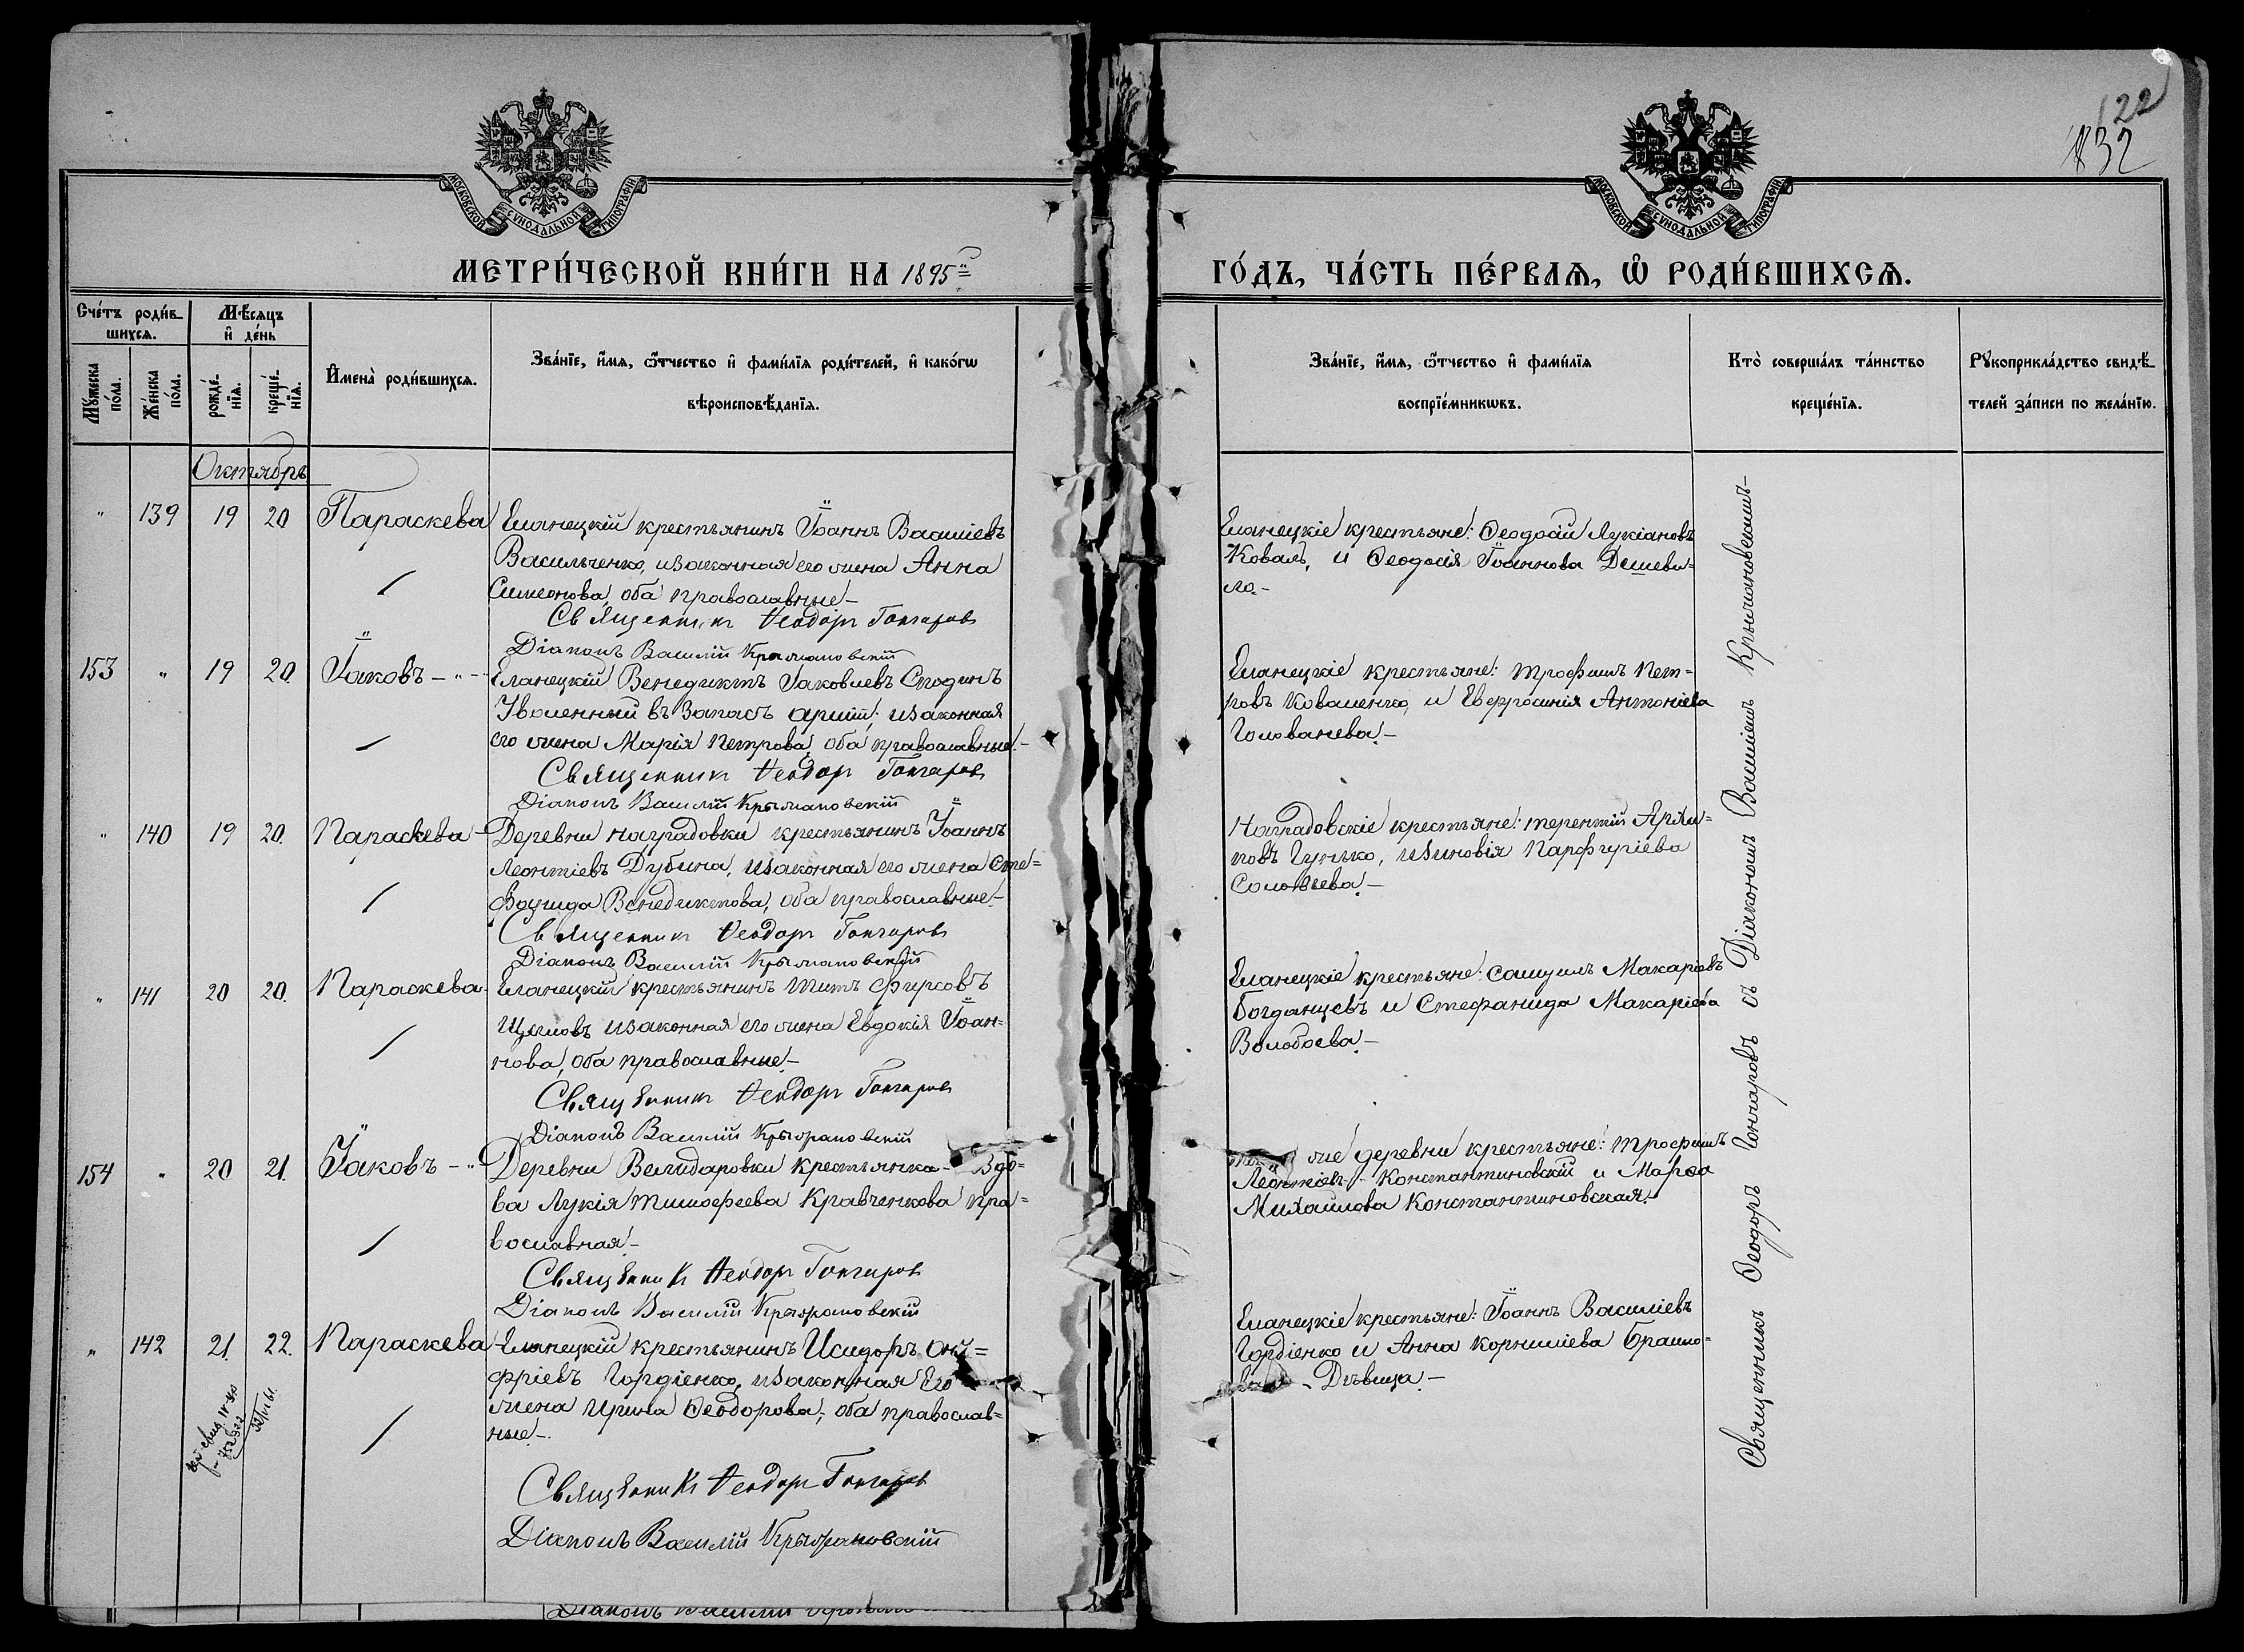 122
132
МОСКОВСКОЙ СѴНОДАЛЬНОЙ ТИПОГРАФІИ
МОСКОВСКОЙ СѴНОДАЛЬНОЙ ТИПОГРАФІИ
МЕТРИ́ЧЕСКОЙ КНИ́ГИ НА 1895й
ГО́ДЪ, ЧА́СТЬ ПЕ́РВАЯ, Ѡ РОДИ́ВШИХСЯ.
Сче́тъ роди́в-
шихся.
Мꙋ́жеска по́ла.
Же́нска по́ла.
Мѣ́сяцъ
и де́нь
рожде́-
нїя.
креще́-
нїя.
Имена̀ роди́вшихся.
Зва́нїе, и́мя, ѻ́тчество и фами́лїя роди́телей, и како́гѡ
вѣроисповѣ́данїя.
Зва́нїе, и́мя, ѻ́тчество и фами́лїя
воспрїе́мникѡвъ.
Кто̀ соверша́лъ та́инство
креще́нїя.
Рꙋкоприкла́дство свидѣ́-
телей за́писи по жела́нїю.
Октябрь
" 139 19 20 Параскева
Еланецкій крестьянинъ Іоаннъ Василіевъ
Васильченко, и законная его жена Анна
Симеонова, оба православные.-
Священникъ Ѳеодоръ Гончаровъ
Діаконъ Василій Крыжановскій
Еланецкіе крестьяне: Ѳеодосій Лукіановъ
Коваль, и Ѳеодосія Іоаннова Дешеви-
ло.-
153 " 19 20. Іаковъ - " -
Еланецкій Венедиктъ Іаковлевъ Сподинъ
Уволенный въ Запасъ арміи; и законная
его жена Марія Петрова, оба православные.-
Священникъ Ѳеодоръ Гончаровъ
Діаконъ Василій Крыжановскій
Еланецкіе крестьяне: Трофимъ Пет-
ровъ Коваленко, и Евфросинія Антоніева
Голованева.-
" 140 19 20. Параскева -
Деревни Наградовки крестьянинъ Іоаннъ
Леонтіевъ Дубина, и законная его жена Сте-
фанида Венедиктова, оба православные.-
Священникъ Ѳеодоръ Гончаровъ
Діаконъ Василій Крыжановскій
Наградовскіе крестьяне: Терентій Архи-
повъ Гунько, и Зиновія Парфуріева
Соловьева.-
" 141 20 20. Параскева -
Еланецкій крестьянинъ Титъ Фирсовъ
Щегловъ и законная его жена Евдокія Іоан-
нова, оба православные.-
Священникъ Ѳеодоръ Гончаровъ
Діаконъ Василій Крыжановскій
Еланецкіе крестьяне: Самуилъ Макаріевъ
Богданцевъ и Стефанида Макаріева
Волобоева.-
154 " 20 21. Іаковъ - "
Деревни Велидаровки крестьянка - Вдо-
ва Лукія Тимофеева Кравченкова пра-
вославная.-
Священникъ Ѳеодоръ Гончаровъ
Діаконъ Василій Крыжановскій
же деревни крестьяне: Трофимъ
Леонтіевъ - Константиновскій и Марѳа
Михаилова Константиновская.-
" 142 21. 22. Параскева -
Еланецкій крестьянинъ Исидоръ Ону-
фріевъ Гордіенко, и законная Его
жена Ирина Ѳеодорова; оба православ-
ные.-
Священникъ Ѳеодоръ Гончаровъ
Діаконъ Василій Крыжановскій
Еланецкіе крестьяне: Іоаннъ Василіевъ
Гордіенко и Анна Корниліева Брашо-
Дѣвица.-
Священникъ Ѳеодоръ Гончаровъ съ Діакономъ Василіемъ Крыжановскимъ-